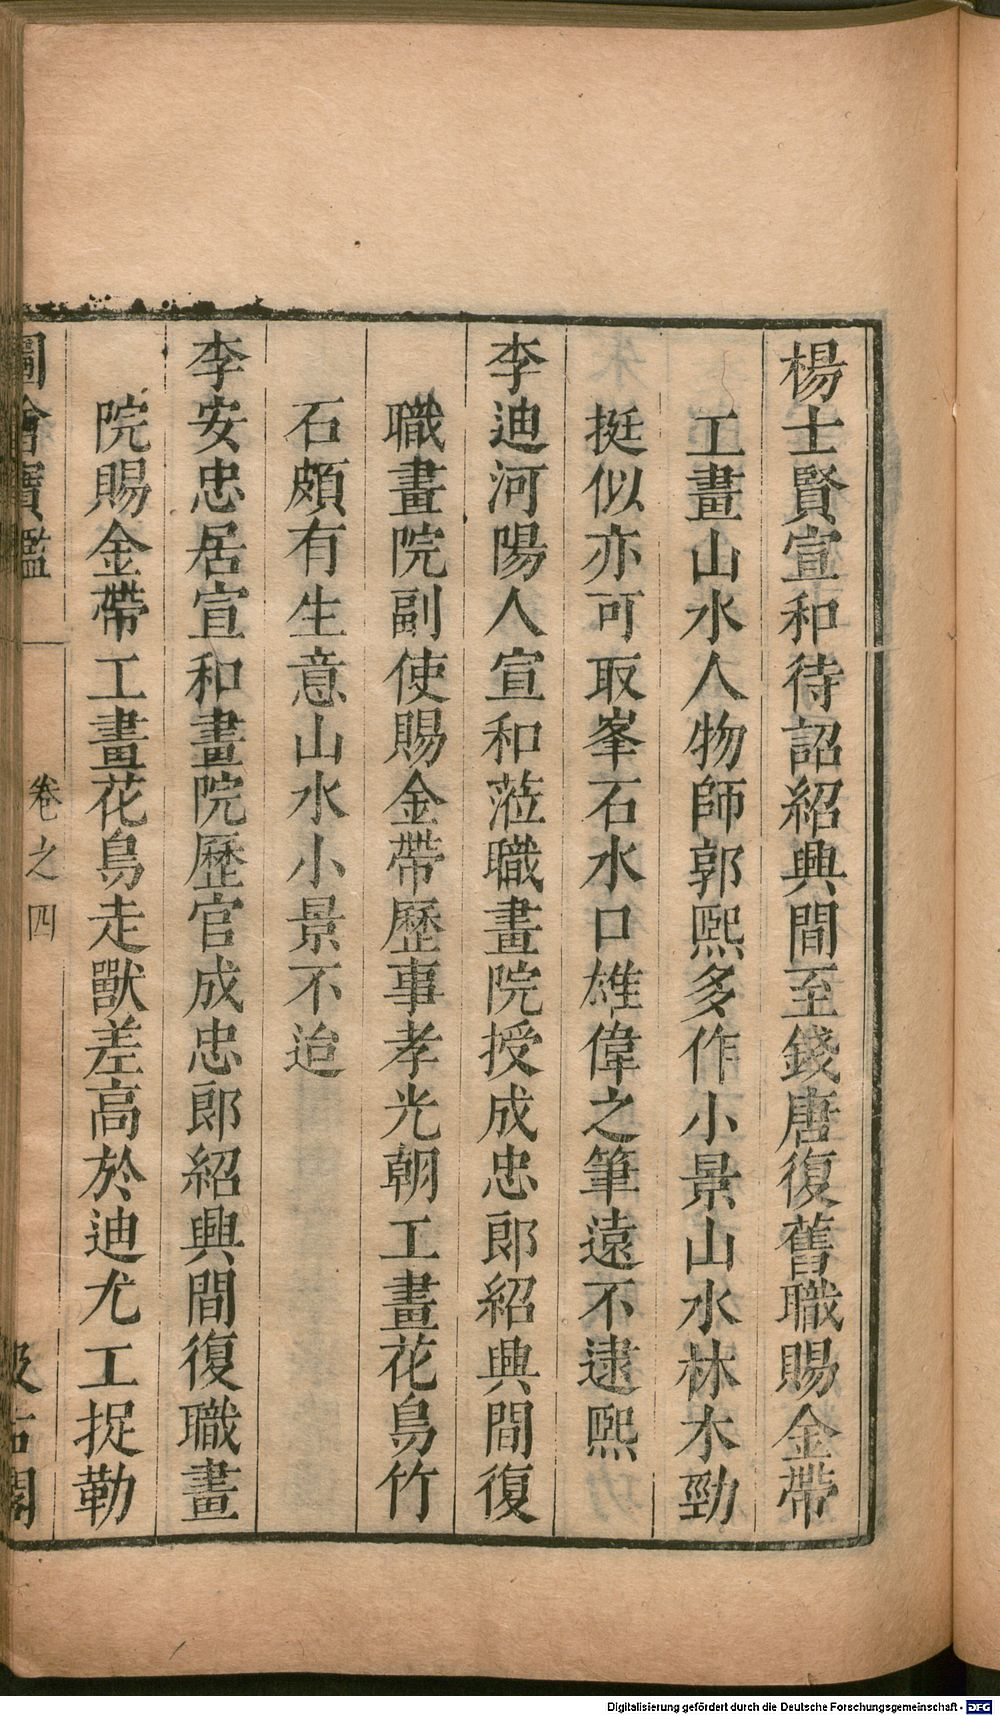 楊士賢宣和待詔紹興間至錢唐復舊職賜金帶
工畫山水人物師郭熙多作小景山水林木勁
挺似亦可取峯石水口雄偉之筆遠不逮熙
李迪河陽人宣和蒞職畫院授成忠郎紹興間復
職畫院副使賜金帶歷事孝光朝工畫花鳥竹
石頗有生意山水小景不迨
李安忠居宣和畫院歷官成忠郎紹興間復職畫
院賜金帶工畫花鳥走獸差高於迪尤工捉勒
圖繪寶鑑 卷之四 汲古閣
Digitalisierung gefördert durch die Deutsche Forschungsgemeinschaft - DFG